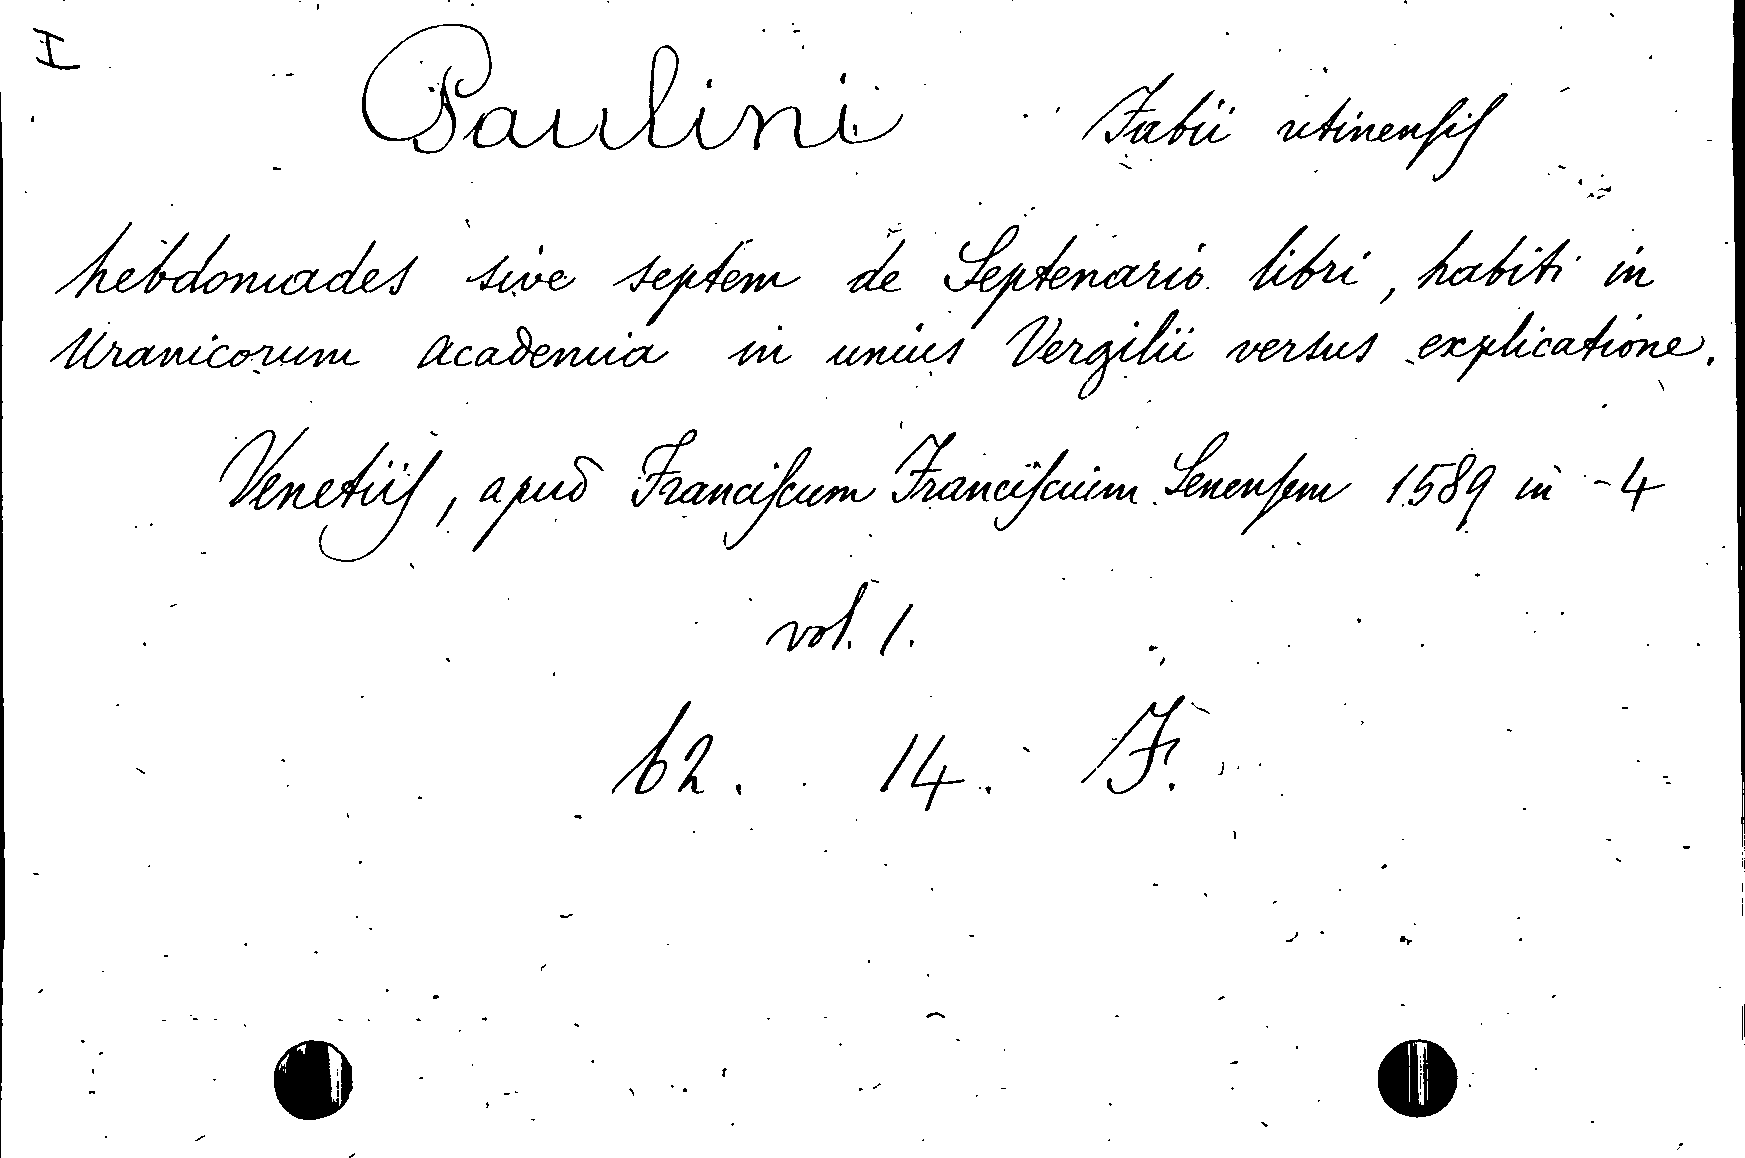 I
Paulini Fabii utinensis
hebdomades sive septem de Septenario libri, habiti in
Uranicorum academia in unius Vergilii versus explicatione.
Venetiis, apud Franciscum Franciscium Senensem 1589 in -4
vol. 1.
62. 14. F.